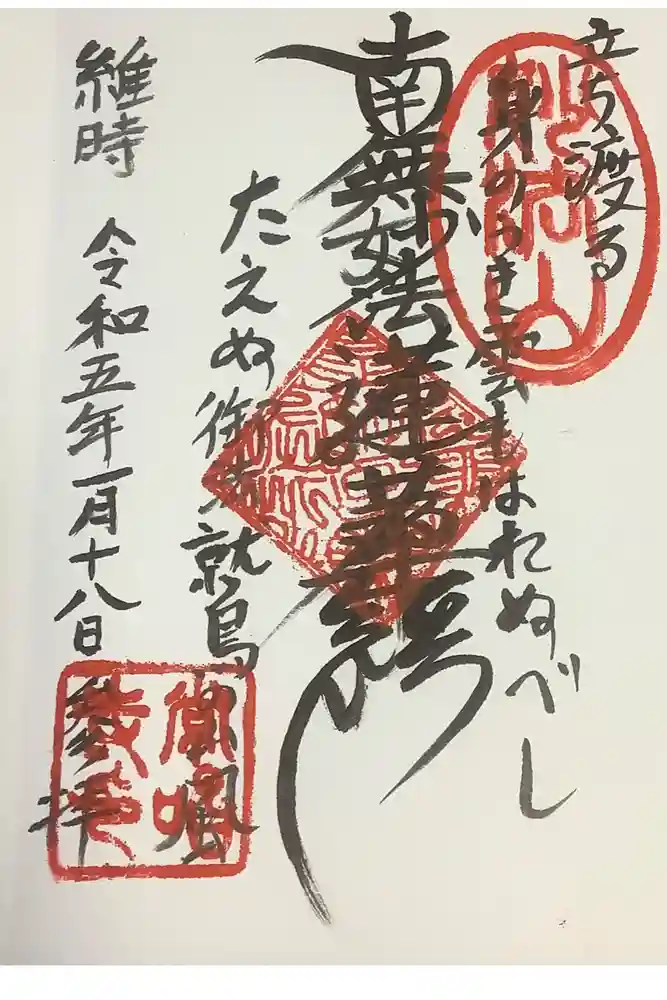 立ち渡る
身のうき雲もはれぬべし
南無妙法蓮華経
たえぬ御法
鷲
風
維時 令和五年一月十八日
参拝